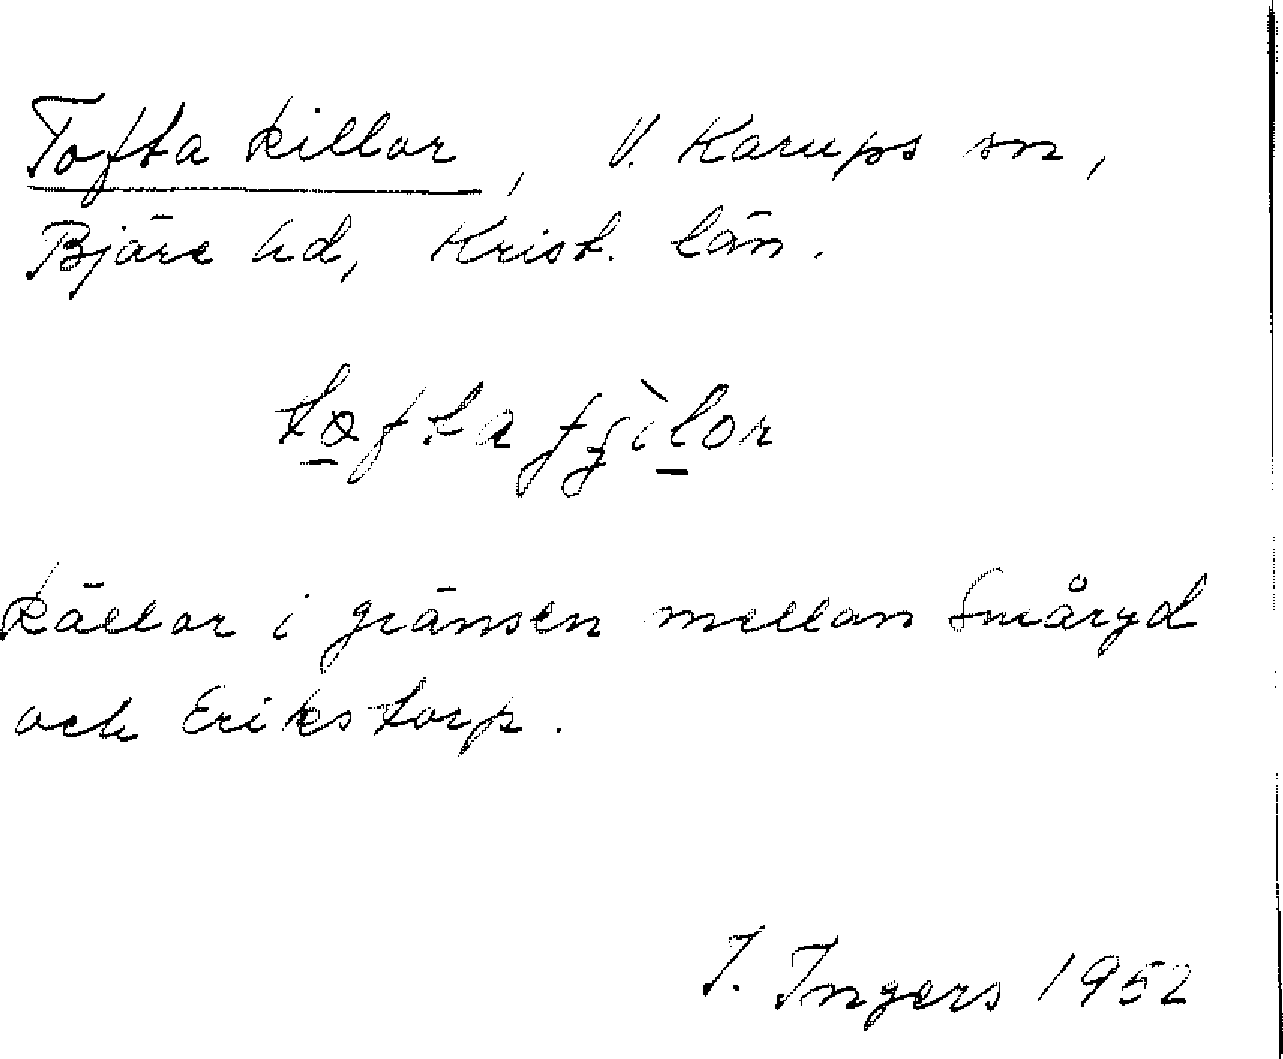 Tofta killor, V. Karups sn,
Bjäre hd, Krist. län.
källor i gränsen mellan Småryd
och Erikstorp.
I. Ingers 1952